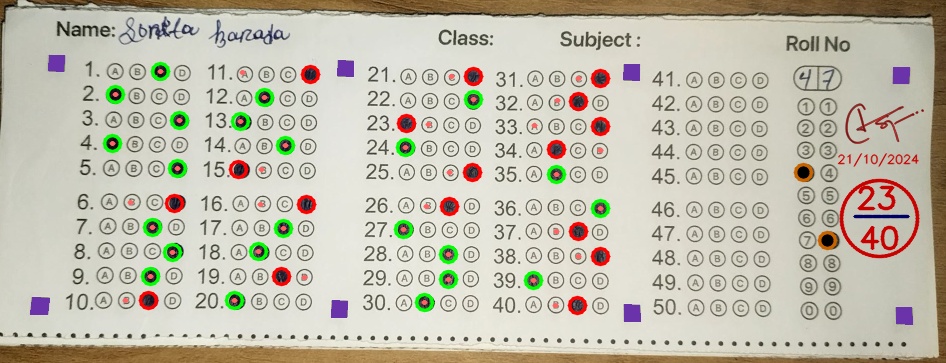 Name:
Class:
Subject :
Roll No
1. A B D
2. B C D
3. A B C
4. B C D
5. A B C
6. A B C
7. A B D
8. A B C
9. A B D
10. A B D
11. A B C
12. A C D
13. B C D
14. A B D
15. B C D
16. A B C
17. A B D
18. A C D
19. A B D
20. B C D
21. A B C
22. A B C
23. B C D
24. B C D
25. A B C
26. A B D
27. B C D
28. A B D
29. A B D
30. A C D
31. A B C
32. A B D
33. A B C
34. A C D
35. A C D
36. A B C
37. A B D
38. A B C
39. B C D
40. A B D
41. A B C D
42. A B C D
43. A B C D
44. A B C D
45. A B C D
46. A B C D
47. A B C D
48. A B C D
49. A B C D
50. A B C D
4 7
1 1
2 2
3 3
4
5 5
6 6
7
8 8
9 9
0 0
21/10/2024
23
40